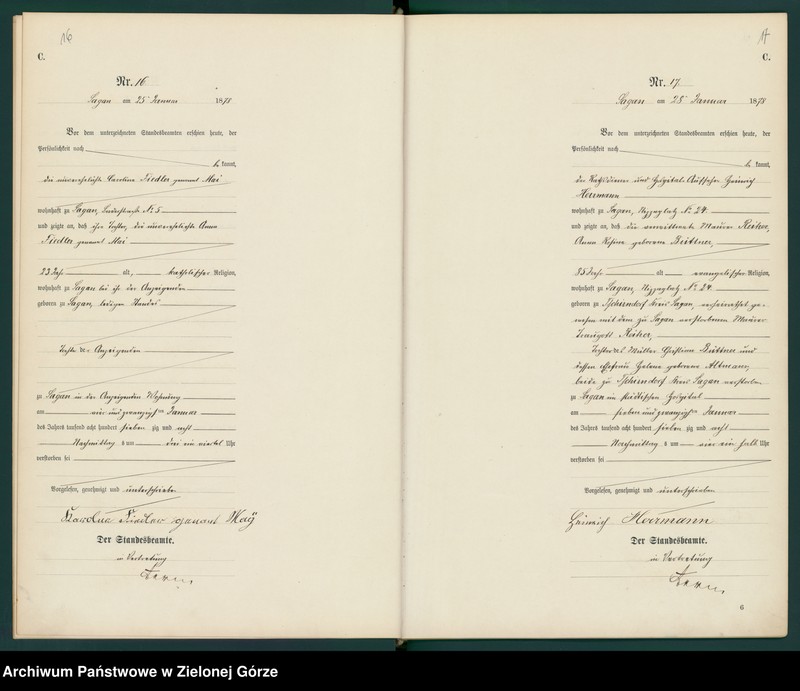 16
C.
Nr. 16
Sagan am 25 Januar 1878
Vor dem unterzeichneten Standesbeamten erschien heute, der
Persönlichkeit nach
be kannt,
die unverehelichte Caroline Fiedler genannt Mai
wohnhaft zu Sagan, No 5
und zeigte an, daß ihre Tochter, die unverehelichte Anna
Fiedler genannt Mai
23 Jahr alt, katholischer Religion,
wohnhaft zu Sagan bei ihr der Anzeigenden
geboren zu Sagan, ledigen Standes
Tochter der Anzeigenden
zu Sagan in der Anzeigenden Wohnung
am vier und zwanzigsten Januar
des Jahres tausend acht hundert sieben zig und acht
Nachmittag s um drei ein viertel Uhr
verstorben sei
Vorgelesen, genehmigt und unterschrieben
Karoline Fiedler genant Maÿ
Der Standesbeamte.
in Vertretung
17
C.
Nr. 17
Sagan am 28 Januar 1878
Vor dem unterzeichneten Standesbeamten erschien heute, der
Persönlichkeit nach
be kannt,
der und Hospital-Aufseher Heinrich
Herrmann
wohnhaft zu Sagan, No 24
und zeigte an, daß die verwittwete Maurer
Anna Rosine geborene Büttner,
85 Jahr alt evangelischer Religion,
wohnhaft zu Sagan, No 24
geboren zu Tschirndorf Kreis Sagan, verheirathet ge-
wesen mit dem zu Sagan verstorbenen Maurer
Traugott
Tochter des Müller Christian Büttner und
dessen Ehefrau Helene geborene Altmann,
beide zu Tschirndorf Kreis Sagan verstorben
zu Sagan im städtischen Hospital
am sieben und zwanzigsten Januar
des Jahres tausend acht hundert sieben zig und acht
Nachmittag s um vier ein halb Uhr
verstorben sei
Vorgelesen, genehmigt und unterschrieben
Heinrich Herrmann
Der Standesbeamte.
in Vertretung
6
Archiwum Państwowe w Zielonej Górze